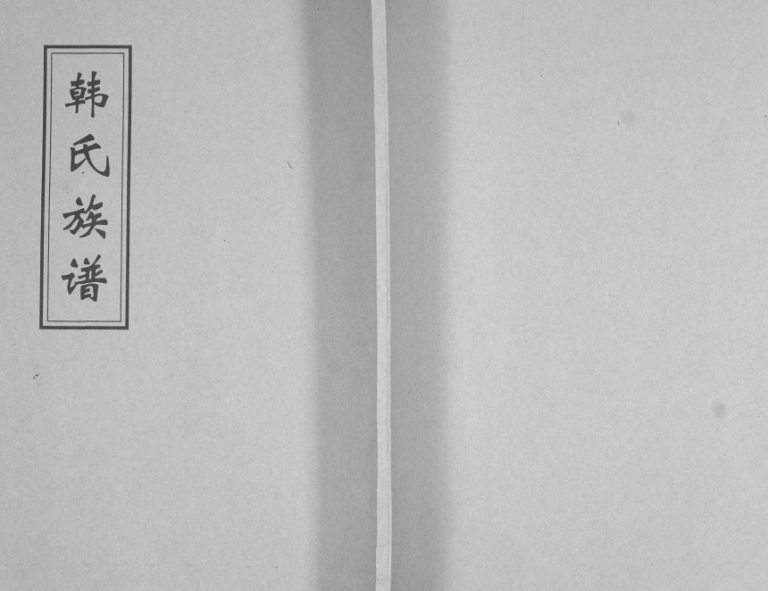 韩氏族谱